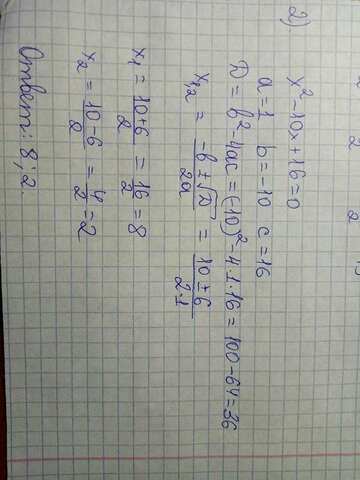 2) x²-10x+16=0
a=1 b=-10 c=16
D=b²-4ac=(-10)²-4·1·16=100-64=36
x₁,₂ = (-b±√D)/2a = (10±6)/2·1
x₁ = (10+6)/2 = 16/2 = 8
x₂ = (10-6)/2 = 4/2 = 2
Ответ: 8; 2.